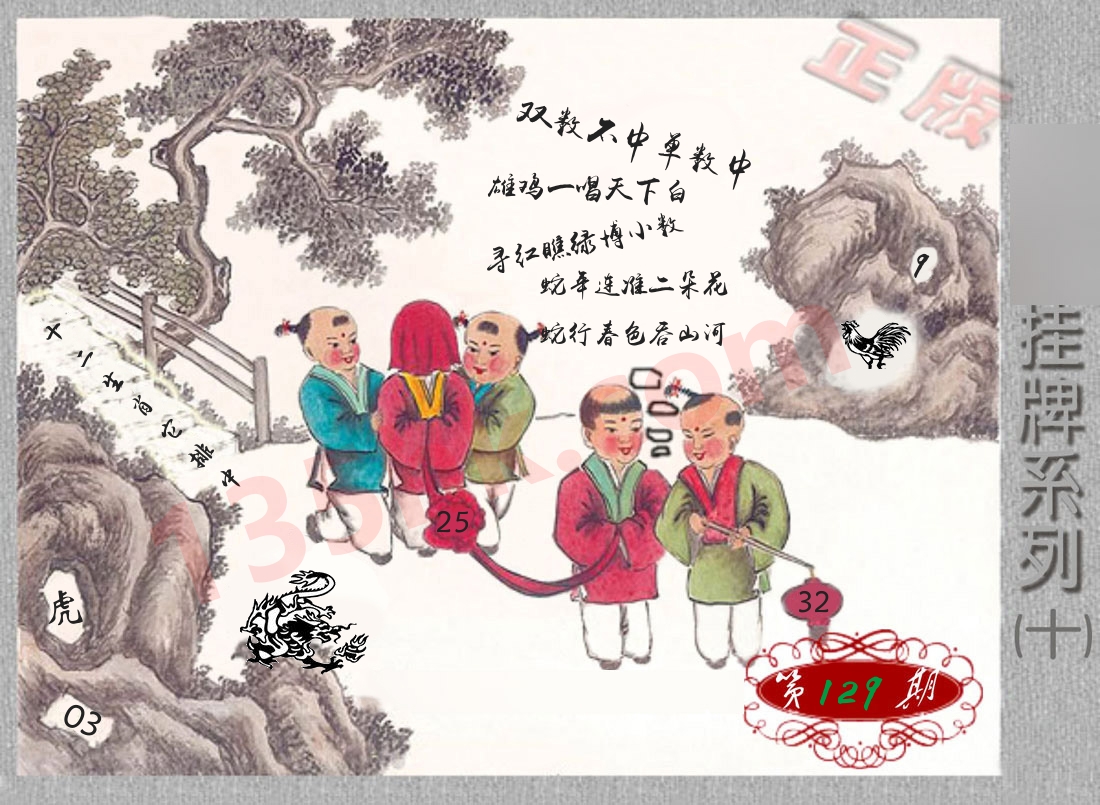 正版
双数不中单数中
雄鸡一唱天下白
寻红瞧绿博小数
蛇年连准二朵花
蛇行春色吞山河
9
挂牌系列(十)
25
32
虎
03
第129期